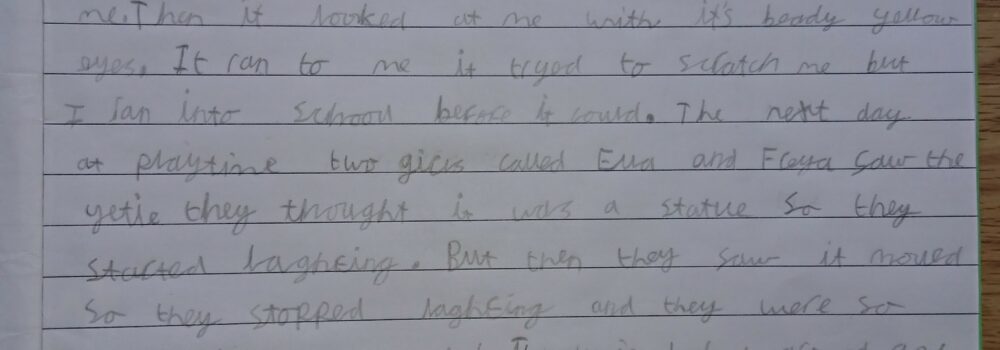 me. Then it looked at me with it's beady yellow
eyes. It ran to me it tryed to scratch me but
I ran into school before it could. The next day
at playtime two girls called Ella and Freya saw the
yetie they thought it was a statue so they
started laghting. But then they saw it moved
so they stopped laghting and they were so